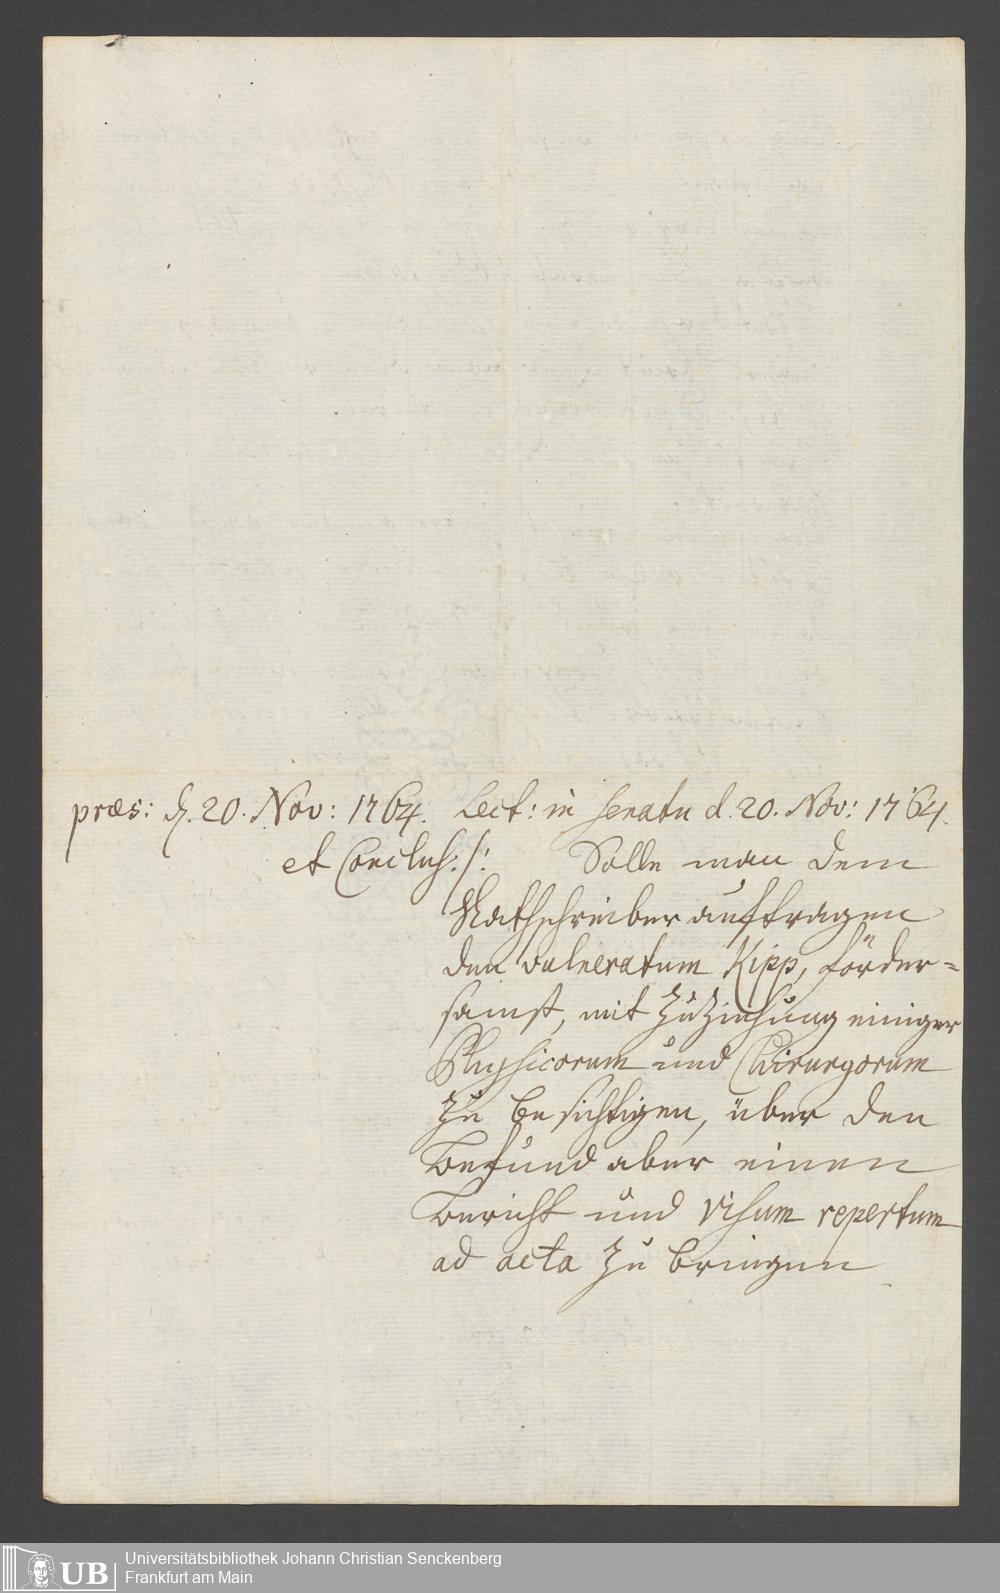 præs: d. 20. Nov: 1764. Lect: in Senatu d. 20. Nov: 1764.
et Conclus: /: Solle man dem
Rathschreiber auftragen
den vulneratum Kipp, förder=
samst, mit Zuziehung einiger
Physicorum und Chirurgorum
zu besichtigen, über den
Befund aber einen
Bericht und visum repertum
ad acta zu bringen
UB
Universitätsbibliothek Johann Christian Senckenberg
Frankfurt am Main